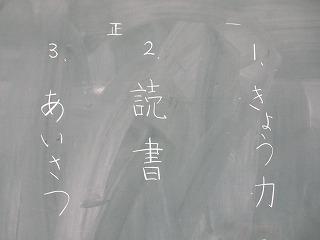 一
1.きょう力
正
2.読書
3.あいさつ